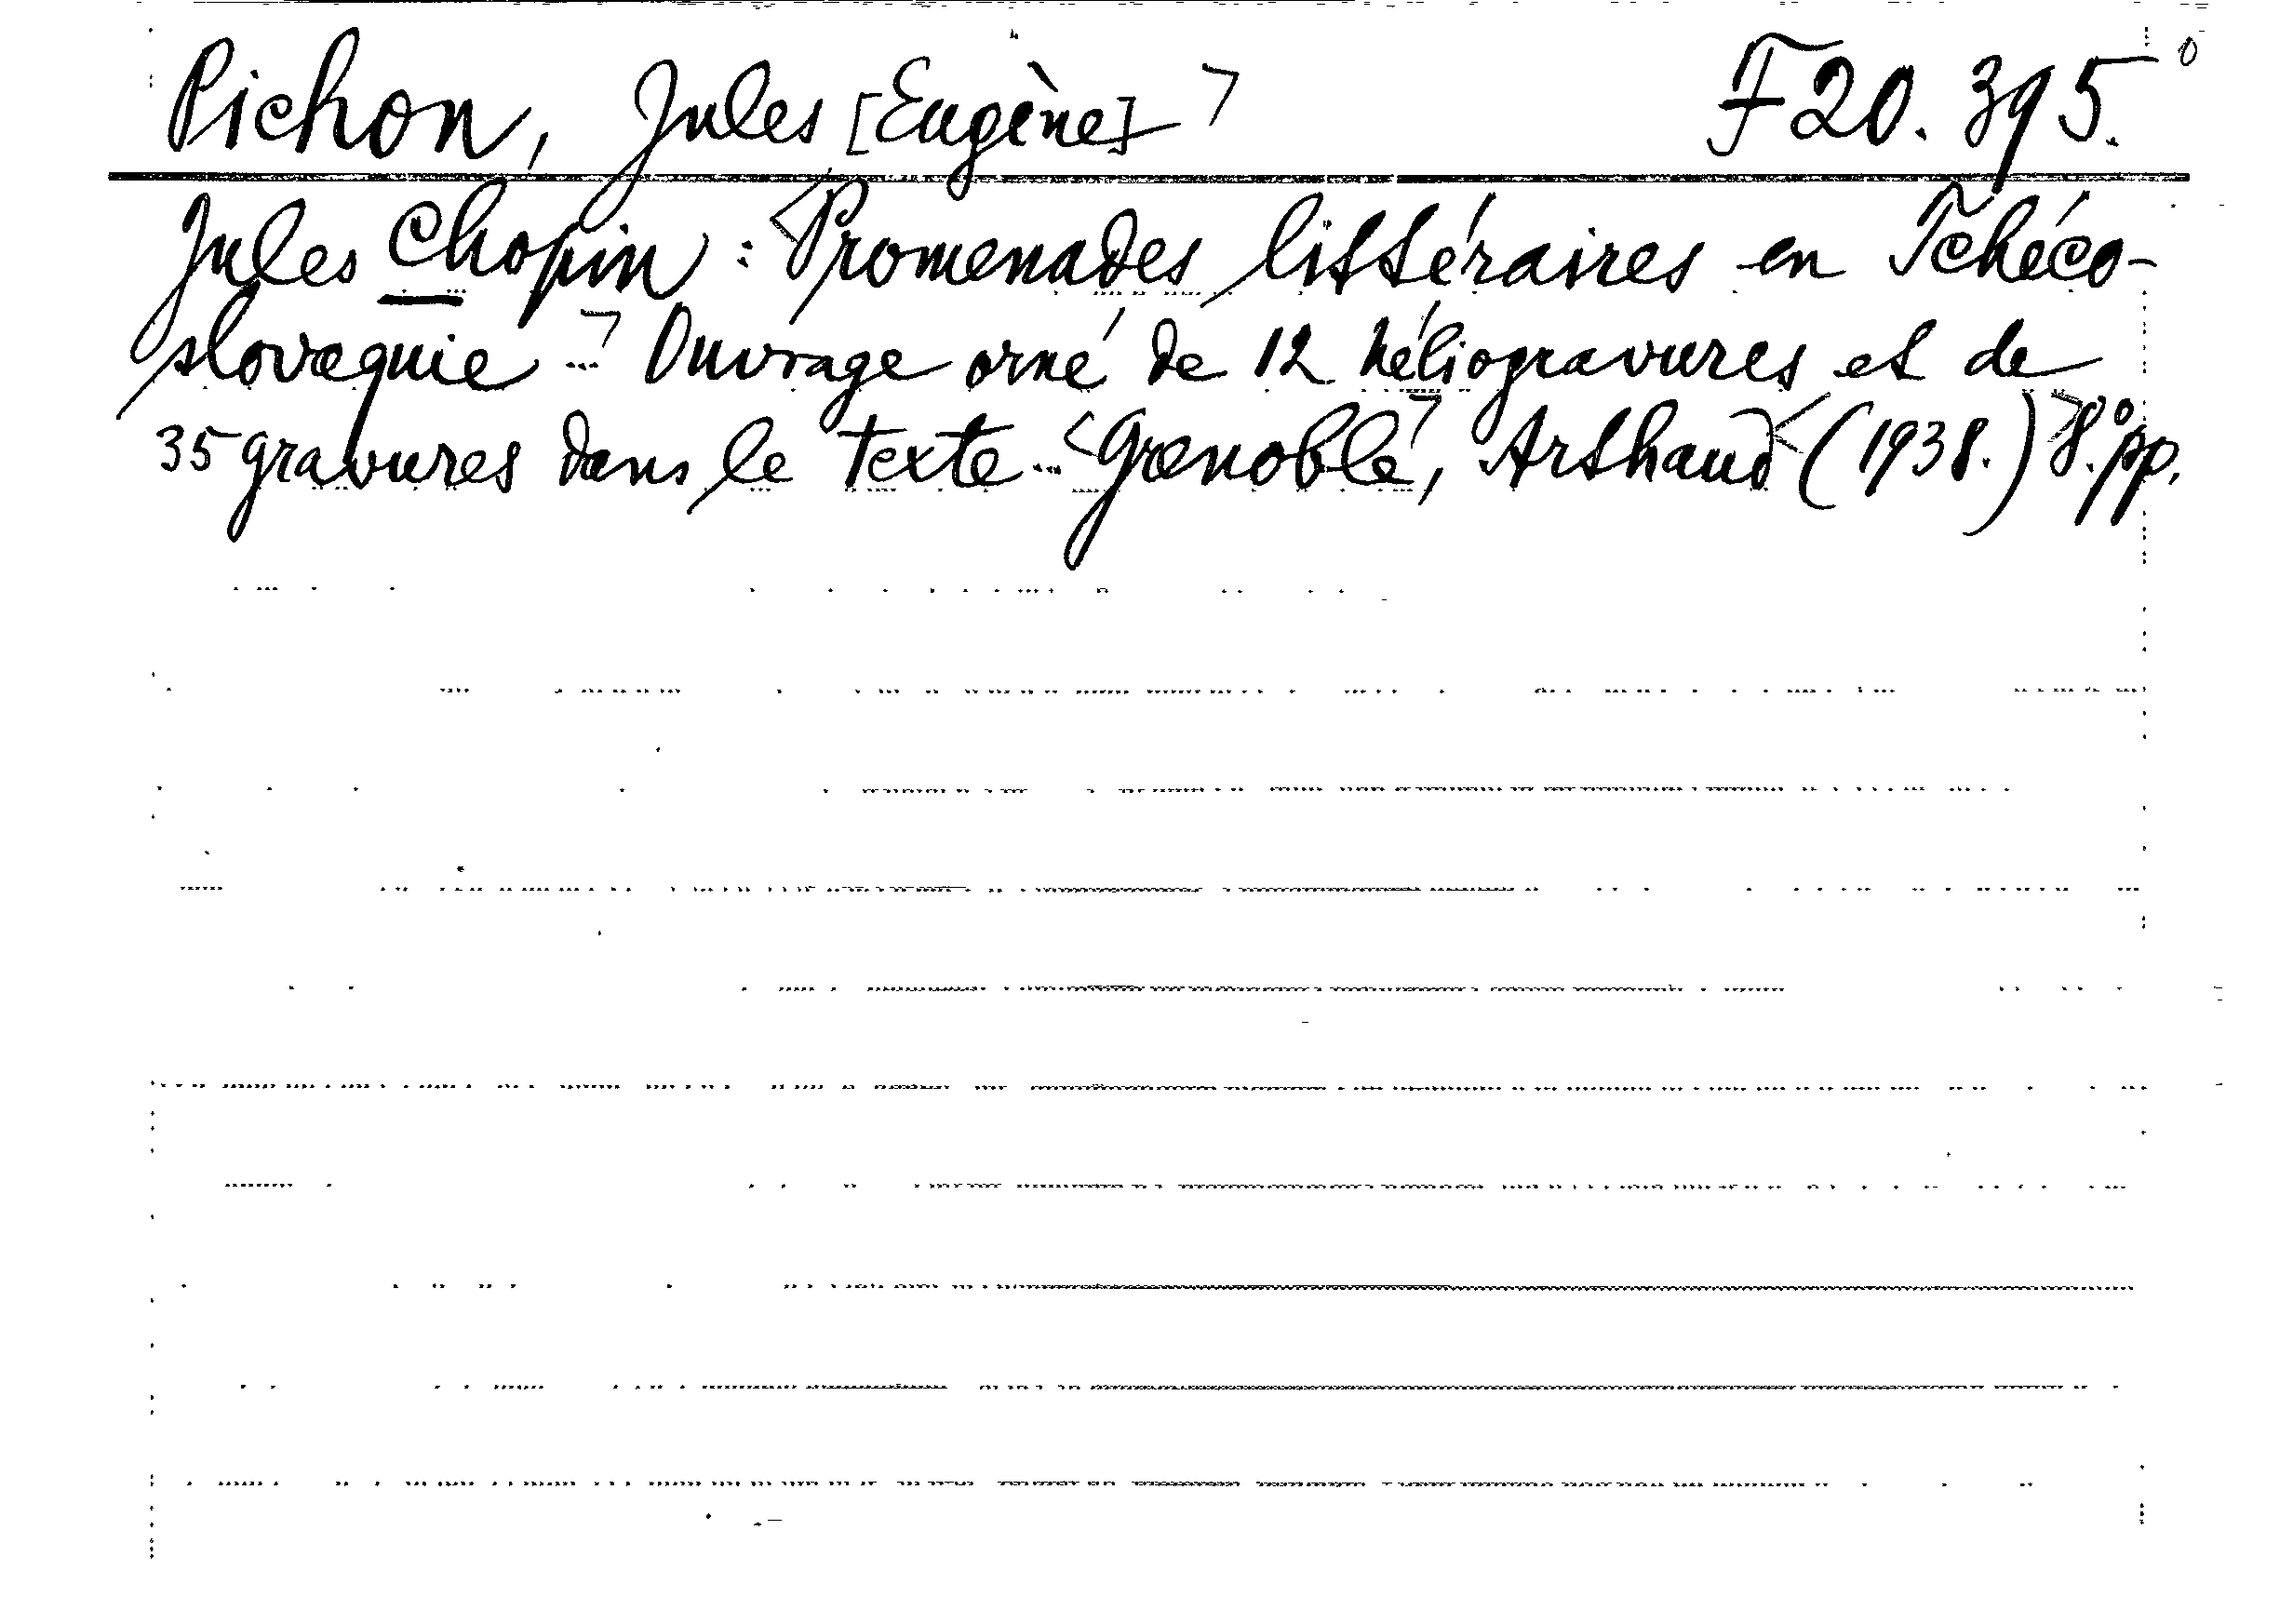 Pichon, Jules [Eugène] F 20.395.
Jules Chopin: Promenades littéraires en Tchéco-
slovaquie ... Ouvrage orné de 12 héliogravures et de
35 gravures dans le texte ... Grenoble, Arthaud (1938.) 8° pp.